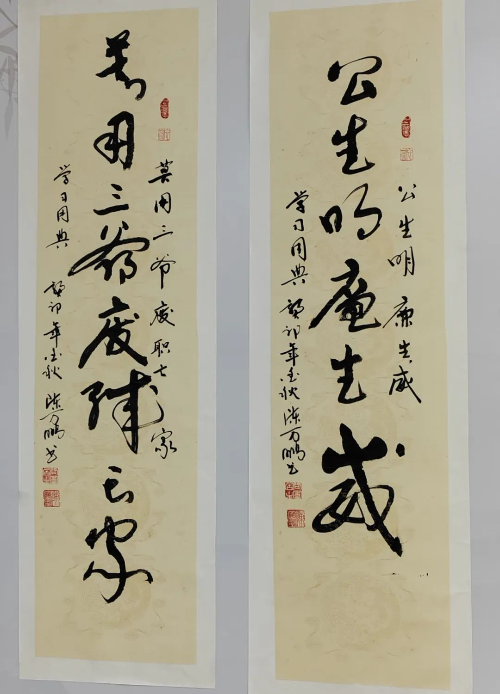 公生明 廉生威
公生明廉生威
学习用典 癸卯年金秋 陈万鹏书
莫用三爷 废职亡家
莫用三爷废职亡家
学习用典 癸卯年金秋 陈万鹏书